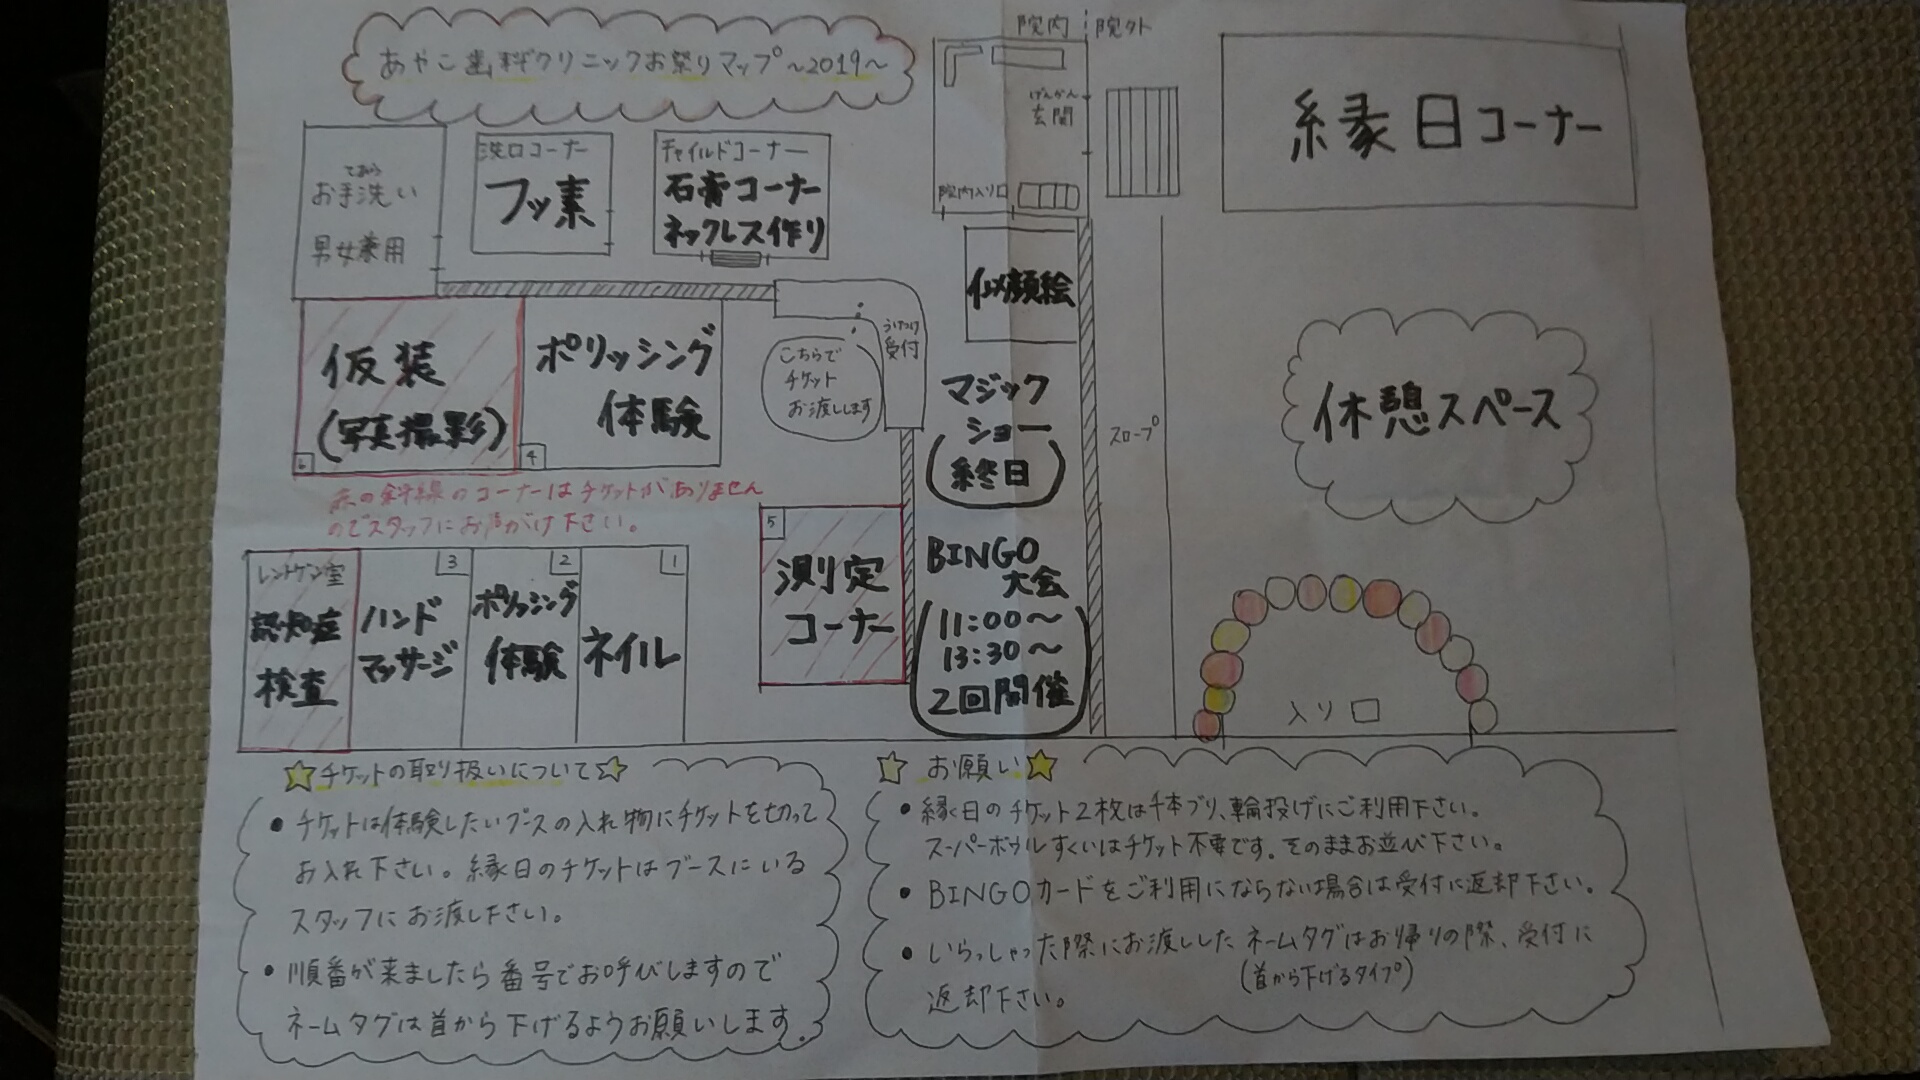 あやこ歯科クリニックお祭りマップ～2019～
院内
院外
げんかん
玄関
院内入り口
縁日コーナー
てあら
お手洗い
男女兼用
洗口コーナー
フッ素
チャイルドコーナー
石膏コーナー
ネックレス作り
似顔絵
仮装
(写真撮影)
6
ポリッシング
体験
4
こちらで
チケット
お渡しします
うけつけ
受付
マジック
ショー
(終日)
スロープ
休憩スペース
赤の斜線のコーナーはチケットがありません
のでスタッフにお声がけ下さい。
レントゲン室
認知症
検査
3
ハンド
マッサージ
2
ポリッシング
体験
1
ネイル
5
測定
コーナー
BINGO
大会
11:00～
13:30～
2回開催
入り口
☆チケットの取り扱いについて☆
• チケットは体験したいブースの入れ物にチケットを切って
お入れ下さい。縁日のチケットはブースにいる
スタッフにお渡し下さい。
• 順番が来ましたら番号でお呼びしますので
ネームタグは首から下げるようお願いします。
☆お願い☆
• 縁日のチケット2枚は千本ブリ、輪投げにご利用下さい。
スーパーボウルすくいはチケット不要です。そのままお並び下さい。
• BINGOカードをご利用にならない場合は受付に返却下さい。
• いらっしゃった際にお渡ししたネームタグはお帰りの際、受付に
(首から下げるタイプ)
返却下さい。